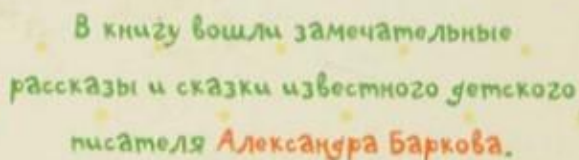 В книгу вошли замечательные
рассказы и сказки известного детского
писателя Александра Баркова.